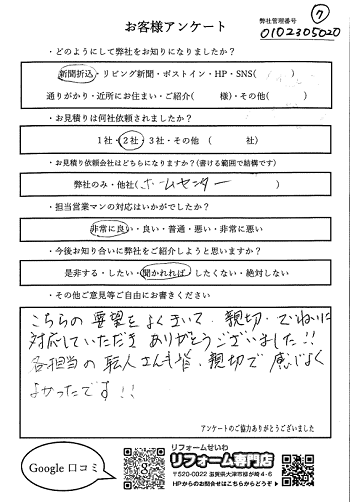 お客様アンケート
弊社管理番号
⑦
0102305020
・どのようにして弊社をお知りになりましたか？
新聞折込・リビング新聞・ポストイン・HP・SNS( )
通りがかり・近所にお住まい・ご紹介( 様)・その他( )
・お見積りは何社依頼されましたか？
1社・2社・3社・その他 ( 社)
・お見積り依頼会社はどちらになりますか？(書ける範囲で結構です)
弊社のみ・他社(ホームセンター )
・担当営業マンの対応はいかがでしたか？
非常に良い・良い・普通・悪い・非常に悪い
・今後お知り合いに弊社をご紹介しようと思いますか？
是非する・したい・聞かれれば・したくない・絶対しない
・その他ご意見等ご自由にお書きください
こちらの要望をよくきいて、親切・ていねいに
対応していただきありがとうございました!!
各担当の職人さんも皆、親切で感じよく
よかったです!!
アンケートのご協力ありがとうございました
Google 口コミ
リフォームせいわ
リフォーム専門店
〒520-0022 滋賀県大津市柳が崎4-6
HPからのお問合せはこちらからどうぞ